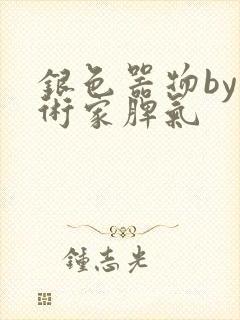 銀色器物by
術家脾氣
鍾志光